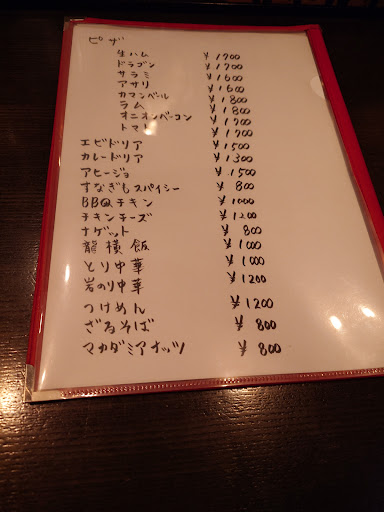 ピザ
生ハム ¥1700
ドラゴン ¥1700
サラミ ¥1600
アサリ ¥1600
カマンベール ¥1800
ラム ¥1800
オニオンベーコン ¥1700
トマト ¥1700
エビドリア ¥1500
カレードリア ¥1300
アヒージョ ¥1500
すなぎもスパイシー ¥800
BBQチキン ¥1000
チキンチーズ ¥1200
ナゲット ¥800
龍横飯 ¥1000
とり中華 ¥1000
岩のり中華 ¥1200
つけめん ¥1200
ざるそば ¥800
マカダミアナッツ ¥800